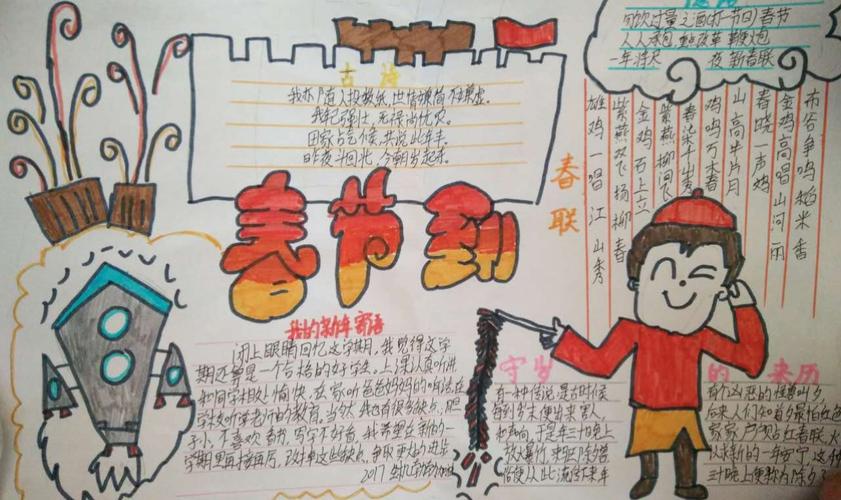 古诗
我亦随人投数纸,世情嫌简不嫌虚。
我年已强壮,无禄尚忧农。
田家占气候,共说此年丰。
昨夜斗回北,今朝岁起东。
春节到
一年将尽 夜 新春联
春联
布谷争鸣稻米香
金鸡高唱山河丽
春晓一声鸡
山高半片月
鸡鸣万木春
紫燕柳间飞
金鸡石上立
紫燕双飞扬柳春
雄鸡一唱江山秀
我的新年寄语
闭上眼睛回忆这学期,我觉得这学
期还算是一个合格的好学生。上课认真听讲
和同学相处愉快。在家听爸爸妈妈的话在
学校听老师的教育。当然我也有很多缺点:胆
子小,不喜欢看书,写字不好看。我希望在新的一
学期里再接再厉,改掉这些缺点,争取更大的进步
2017
守岁的来历
有一种传说,是古时候
每到岁末便出来害人
响,于是年三十晚上
放火爆竹来驱除夕兽
俗便从此流传下来年
有个凶恶的怪兽叫夕
后来人们知道夕最怕红色
家家户户贴红春联,
以求新的一年安宁,这种
三十晚上便称为除夕